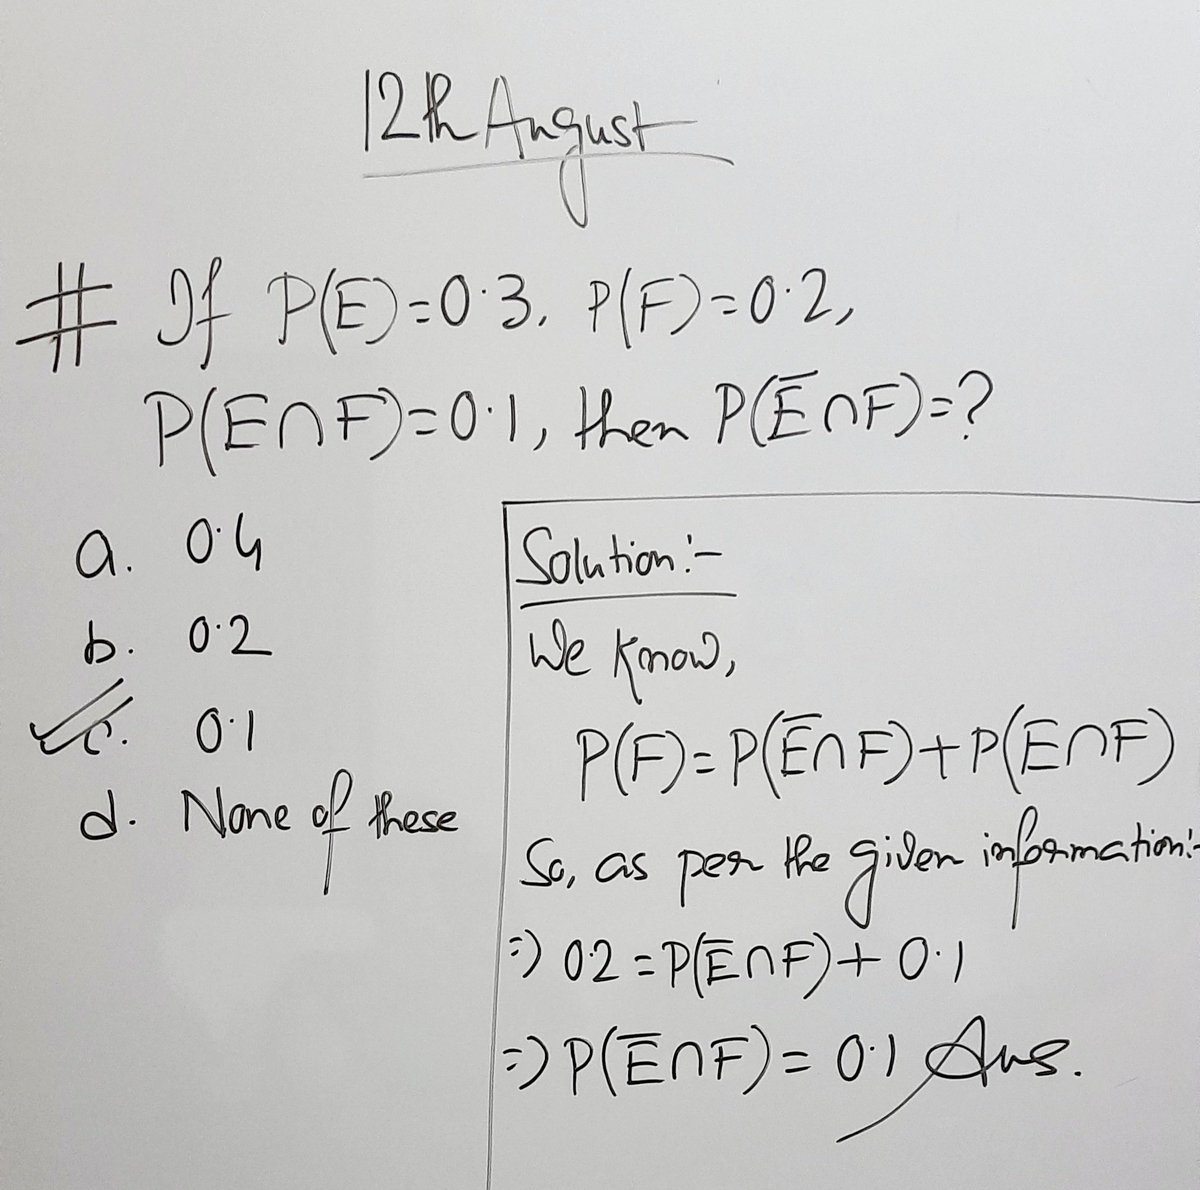 12th August
# If P(E)=0.3, P(F)=0.2,
P(E∩F)=0.1, then P(E̅∩F)=?
a. 0.4
b. 0.2
✓c. 0.1
d. None of these
Solution:-
We know,
P(F)=P(E̅∩F)+P(E∩F)
So, as per the given information:-
⇒ 0.2=P(E̅∩F)+0.1
⇒ P(E̅∩F)=0.1 Ans.